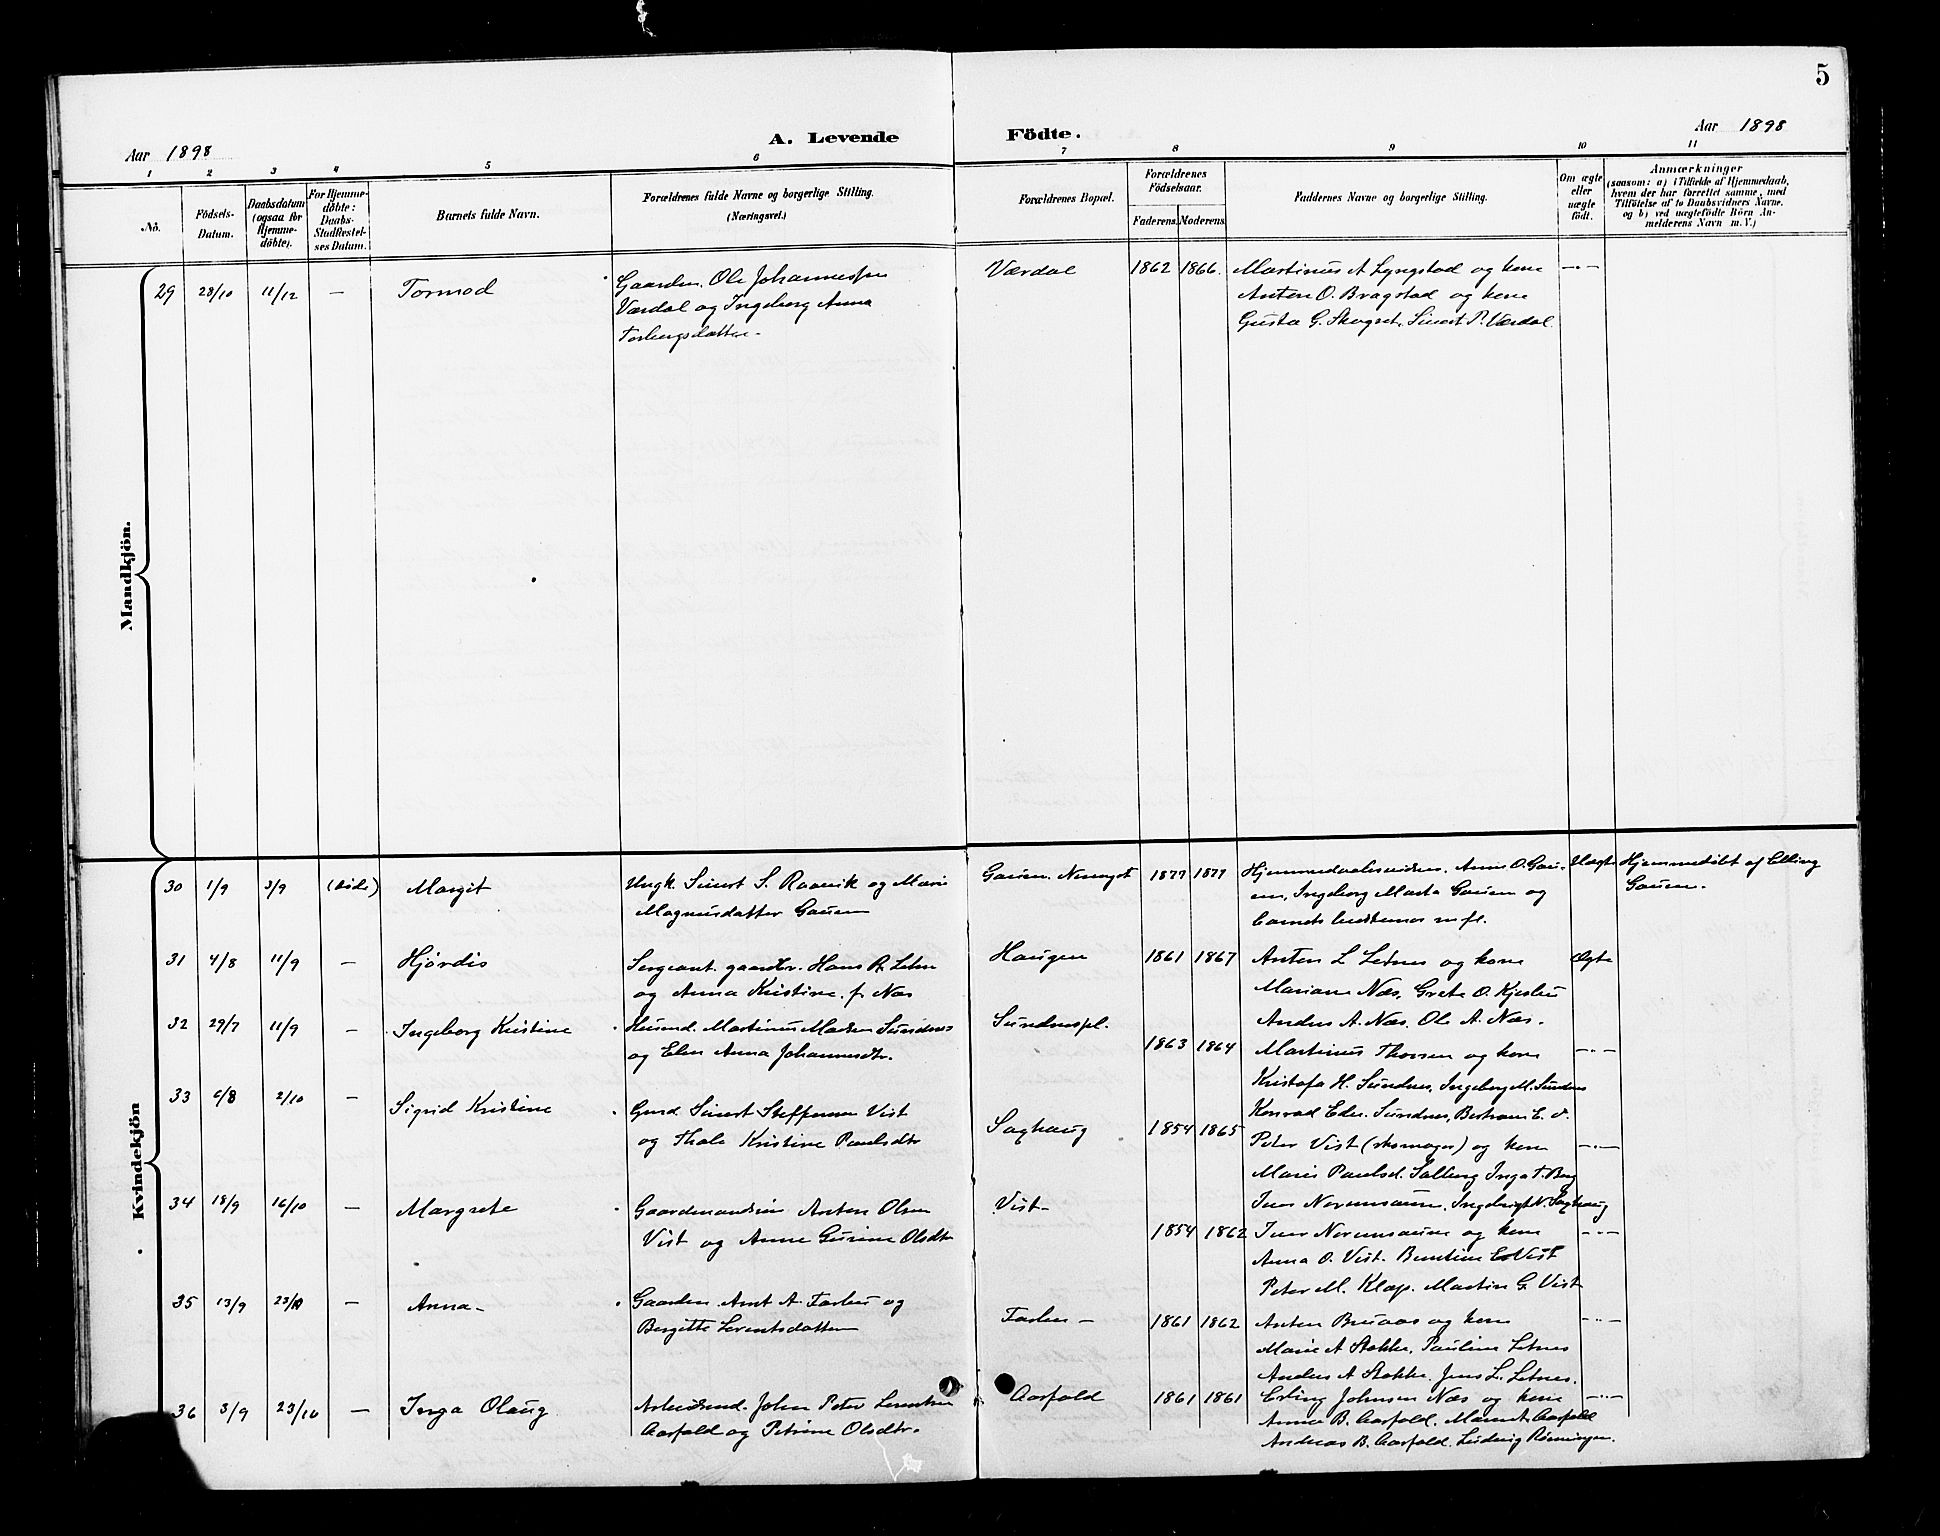 5
Aar 1898
A. Levende Födte.
Aar 1898
1 2 3 4 5 6 7 8 9 10 11
No.
Födsels-Datum.
Daabsdatum (ogsaa for Hjemme-döbte).
For Hjemme-döbte: Daabs-Stadfæstel-ses Datum.
Barnets fulde Navn.
Forældrenes fulde Navne og borgerlige Stilling.
(Næringsvei.)
Forældrenes Bopæl.
Forældrenes Födselsaar.
Faderens. Moderens.
Faddernes Navne og borgerlige Stilling.
Om ægte eller uægte födt.
Anmærkninger
(saasom: a) i Tilfælde af Hjemmedaab,
hvem der har forrettet samme, med
Tilföielse af to Daabsvidners Navne.
og b) ved uægtefödte Börn An-
melderens Navn m. V.)
Mandkjön.
29 28/10 11/12 — Tormod
Gaardm. Ole Johannessen
Værdal og Ingeborg Anna
Torbergsdatter.
Værdal 1862 1866.
Martinus A Lyngstad og kone
Anton O. Bragstad og kone
Gusta G. Skogset, Sivert P. Værdal.
—"—
Kvindekjön
30 1/9 3/9 (död) Margit
Ungk. Sivert S. Raavik og Marie
Magnusdatter Gausen
Gausen. 1877 1877
Anne O. Gau-
sen, Ingeborg Marta Gausen og
m. fl.
Uægte
Hjemmedöbt af Elling
Gausen.
31 4/8 11/9 — Hjördis
Sergeant. gaardbr. Hans R. Letnes
og Anna Kristine f. Næs
Haugen 1861 1867
Anton L Letnes og kone
Mariane Næs, Grete O. Kjeslu
Anders A. Næs. Ole A. Næs.
Ægte
32 29/7 11/9 — Ingeborg Kristine
Husmd. Martinus Madsen Sundnes
og Elen Anna Johannesdtr.
Sundnespl. 1863 1864
Martinus Thorsen og kone
Kristofa H. Sundnes, Ingeborg M. Sundnes
Konrad Edv. Sundnes, Bertram E. d.
—"—
33 6/8 2/10 — Sigrid Kristine
Gmd. Sivert Steffensen Vist
og Thale Kristine Paulsdtr
Saghaug 1854 1865
Peter Vist (skomager) og kone
Marie Paulsd. Salberg Inga T. Berg
Iver Norumsaunn, Ingebrigt N. Saghaug
—"—
34 18/9 16/10 — Margrete
Gaardmand Anton Olsen
Vist og Anne Gurine Olsdtr
Vist 1854 1862
Iver Norumsaunn og kone
Anna O. Vist. Berntine E. Vist
Peter M. Klæp. Martin G. Vist
—"—
35 13/9 23/10 — Anna
Gaardm. Arnt A. Forbu og
Bergitte Lorentsdatter
1861 1862
Anton Bruaas og kone
Marie A Stokke. Pauline Letnes
Anders A Stokke. Jens L. Letnes.
—"—
36 3/9 23/10 — Inga Olaug
Arbeidsmd. John Peter Lorentsen
Aasfald og Petrine Olsdtr.
Aasfald 1861 1861
Erling Johnsen Næs og kone
Anna B. Aasfald. Aasfald
Andreas B. Aasfald. Ludvig Rönningen.
—"—